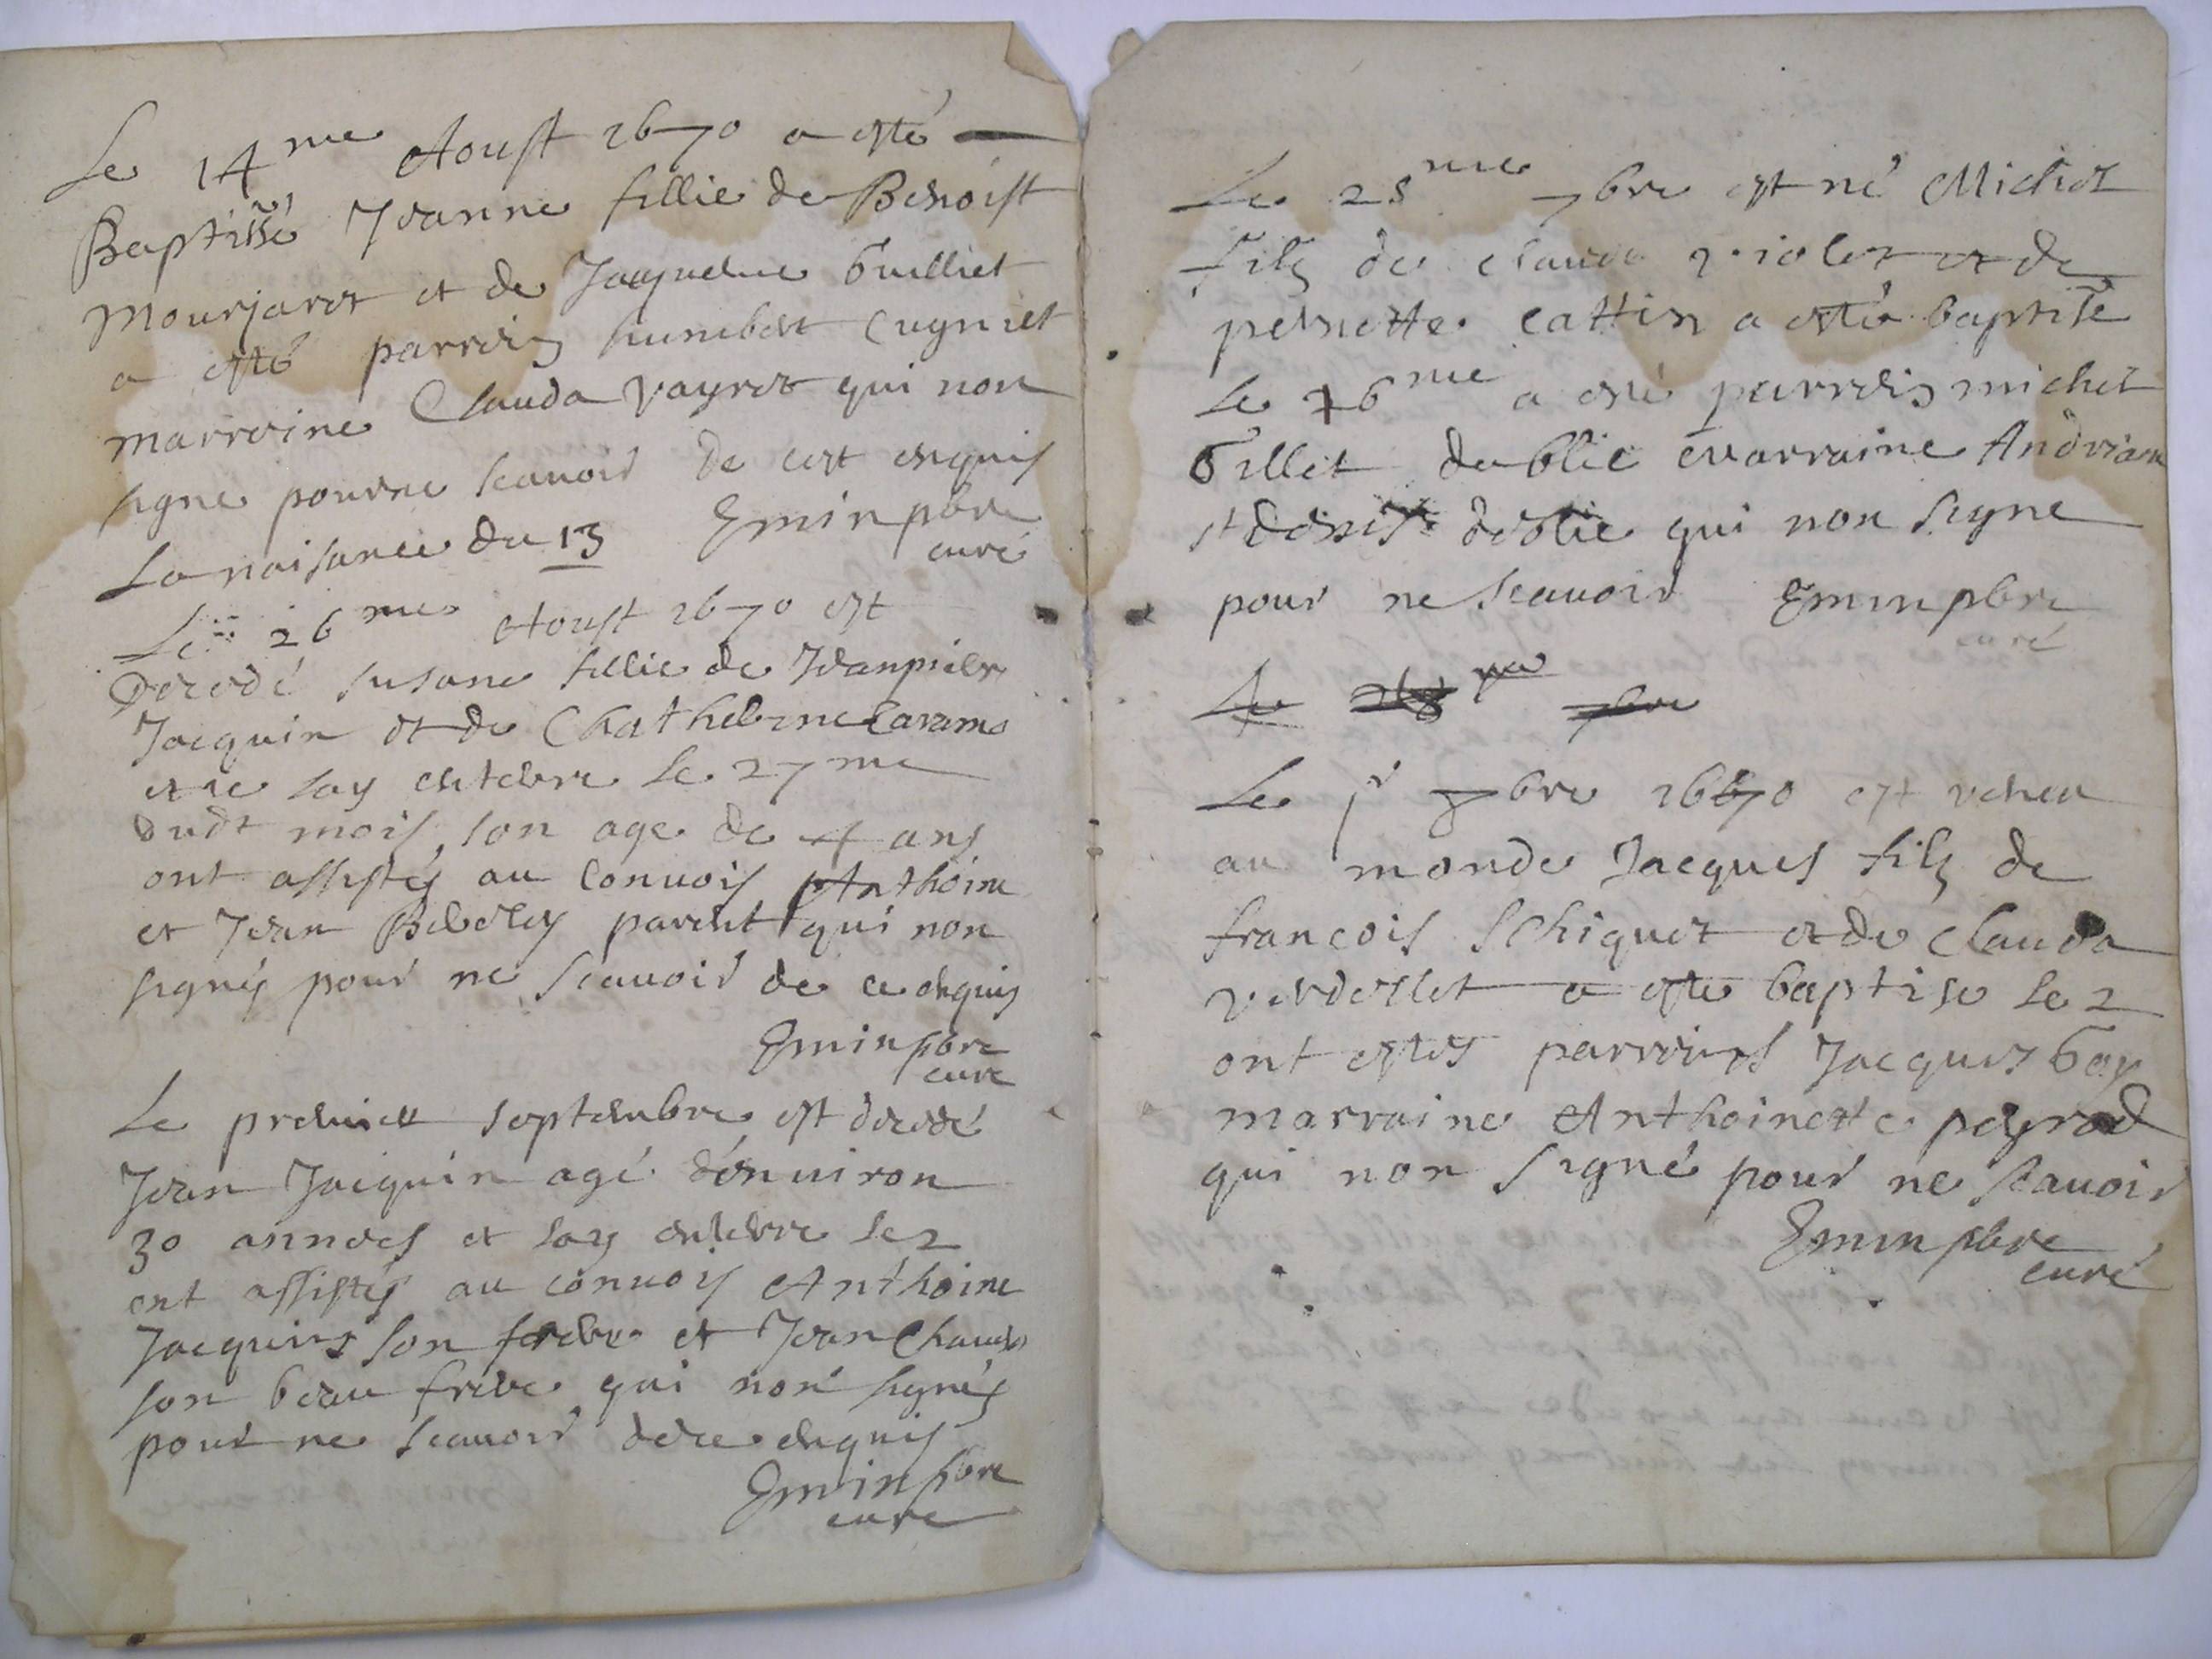 Le 14me Aoust 1670 a esté
Baptissé Jeanne fillie de Benoist
Mourjaret et de Jaqueline Guilliet
a esté parrein humbert Cugniet
marreine Clauda Vayret qui non
signe pour ne scauoir de cest enquis
La naisance du 13 Emin pbre
curé
Le 26me Aoust 1670 est
Decedé susane fillie de Jeanpierre
Jacquin et de Chatherine
et ie lay enterre le 27me
dudt mois, son age de 4 ans
ont assistés au conuois Anthoine
et Jean parent qui non
signés pour ne scauoir de ce enquis
Emin pbre
cure
Le premier septembre est decedé
Jean Jacquin agé denuiron
30 annees et lay enterre le 2
ont assistés au conuois Anthoine
Jacquin son frere et Jean
son beau frere qui non signés
pour ne scauoir de ce enquis
Emin pbre
cure
Le 25me 7bre est né Michel
filz de claude violet et de
pernette cattin a esté baptise
Le 26me a esté parrein michel
Gillet marraine Andriane
qui non signe
pour ne scauoir Emin pbre
curé
Le 7bre
Le jr 8bre 1670 est veneu
au monde Jacques filz de
francois Schiquet et de Clauda
verdellet a esté baptise le 2
ont estes parreins Jacques Gay
marraine Anthoinette peyrod
qui non signé pour ne scauoir
Emin pbre
curé